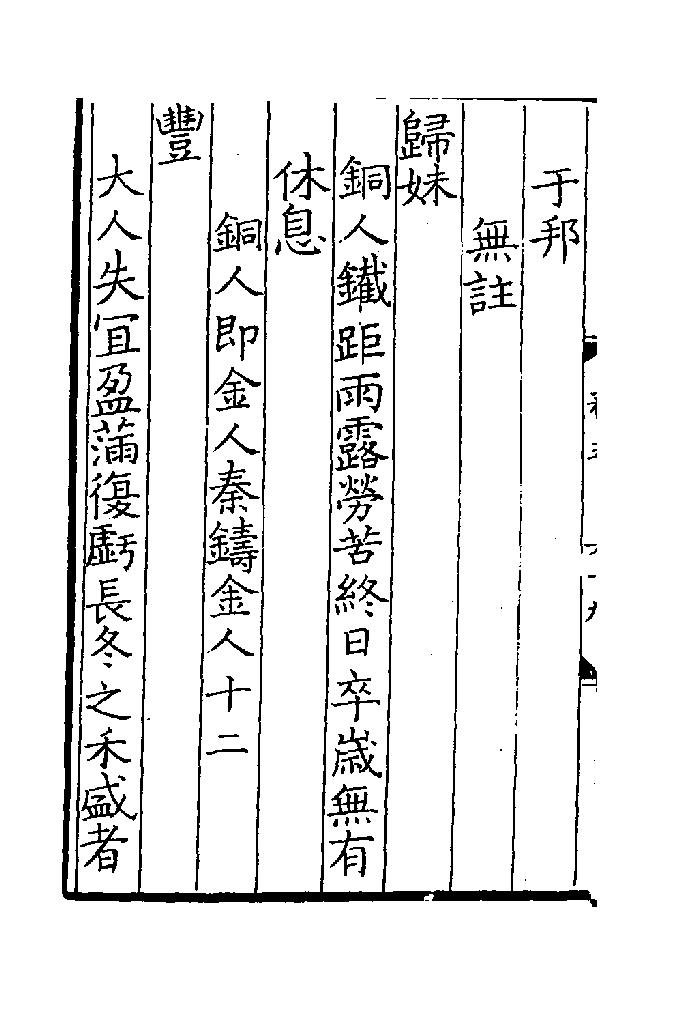 于邦
無註
歸妹
銅人鐵距雨露勞苦終日卒歲無有
休息
銅人即金人秦鑄金人十二
豐
大人失宜盈滿復虧長冬之禾盛者